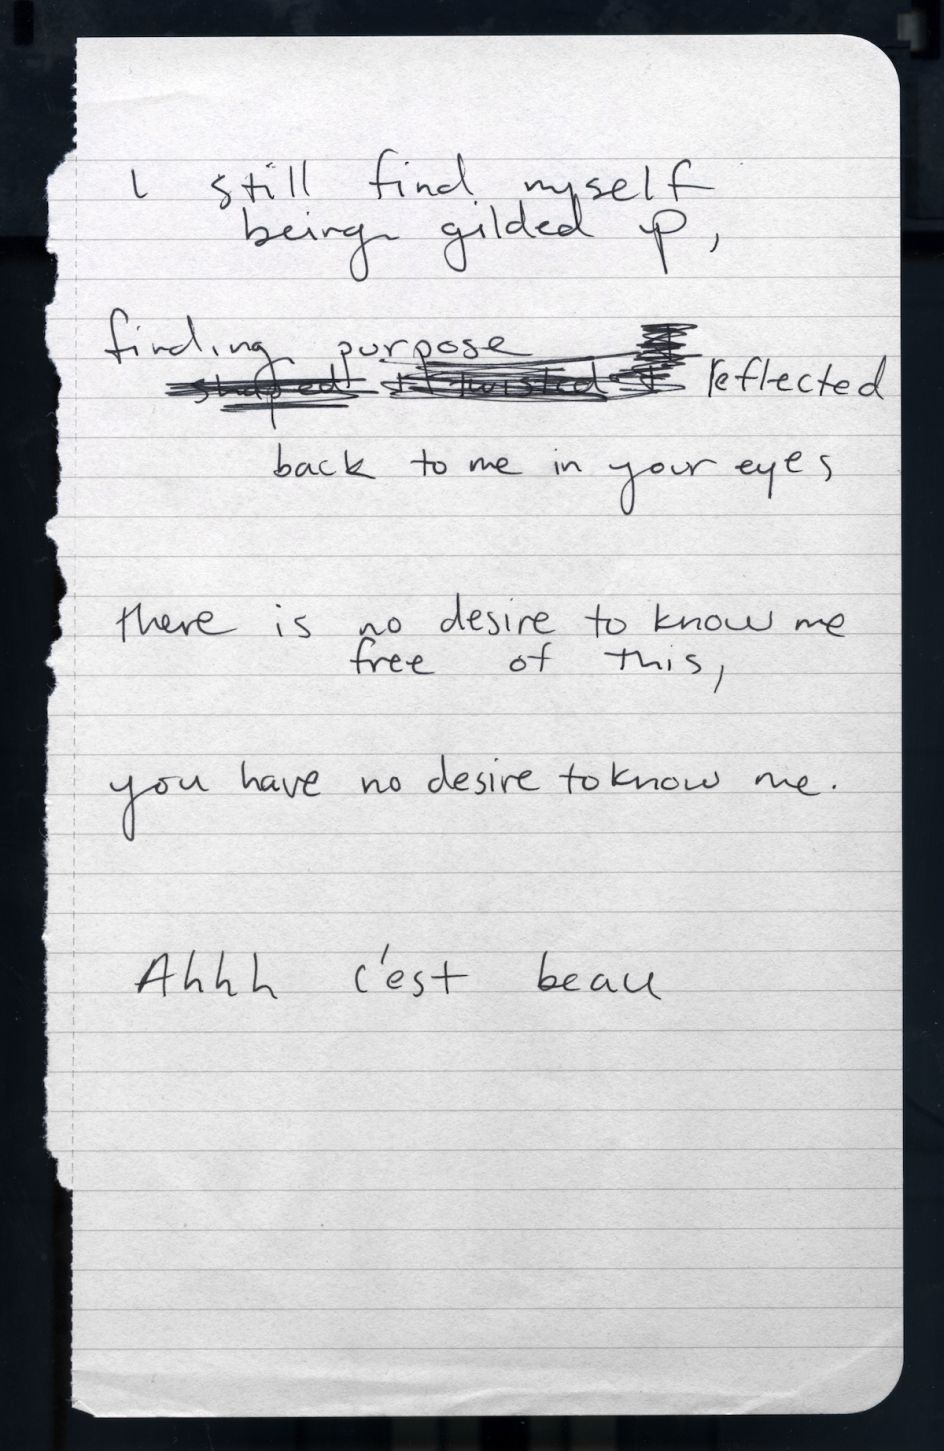 I still find myself
being gilded up,
finding purpose
shaped twisted reflected
back to me in your eyes
there is no desire to know me
free of this,
you have no desire to know me.
Ahhh c'est beau